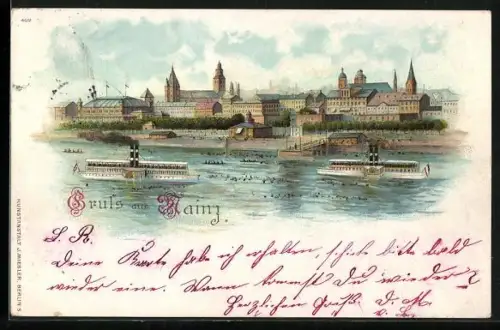 Gruss aus Mainz.
L. R.
Deine Karte hab ich erhalten, schicke bitte bald
wieder eine. Wann kommst Du wieder?
Herzlichen Gruß. D. M.
KUNSTANSTALT J. MIESLER, BERLIN S.